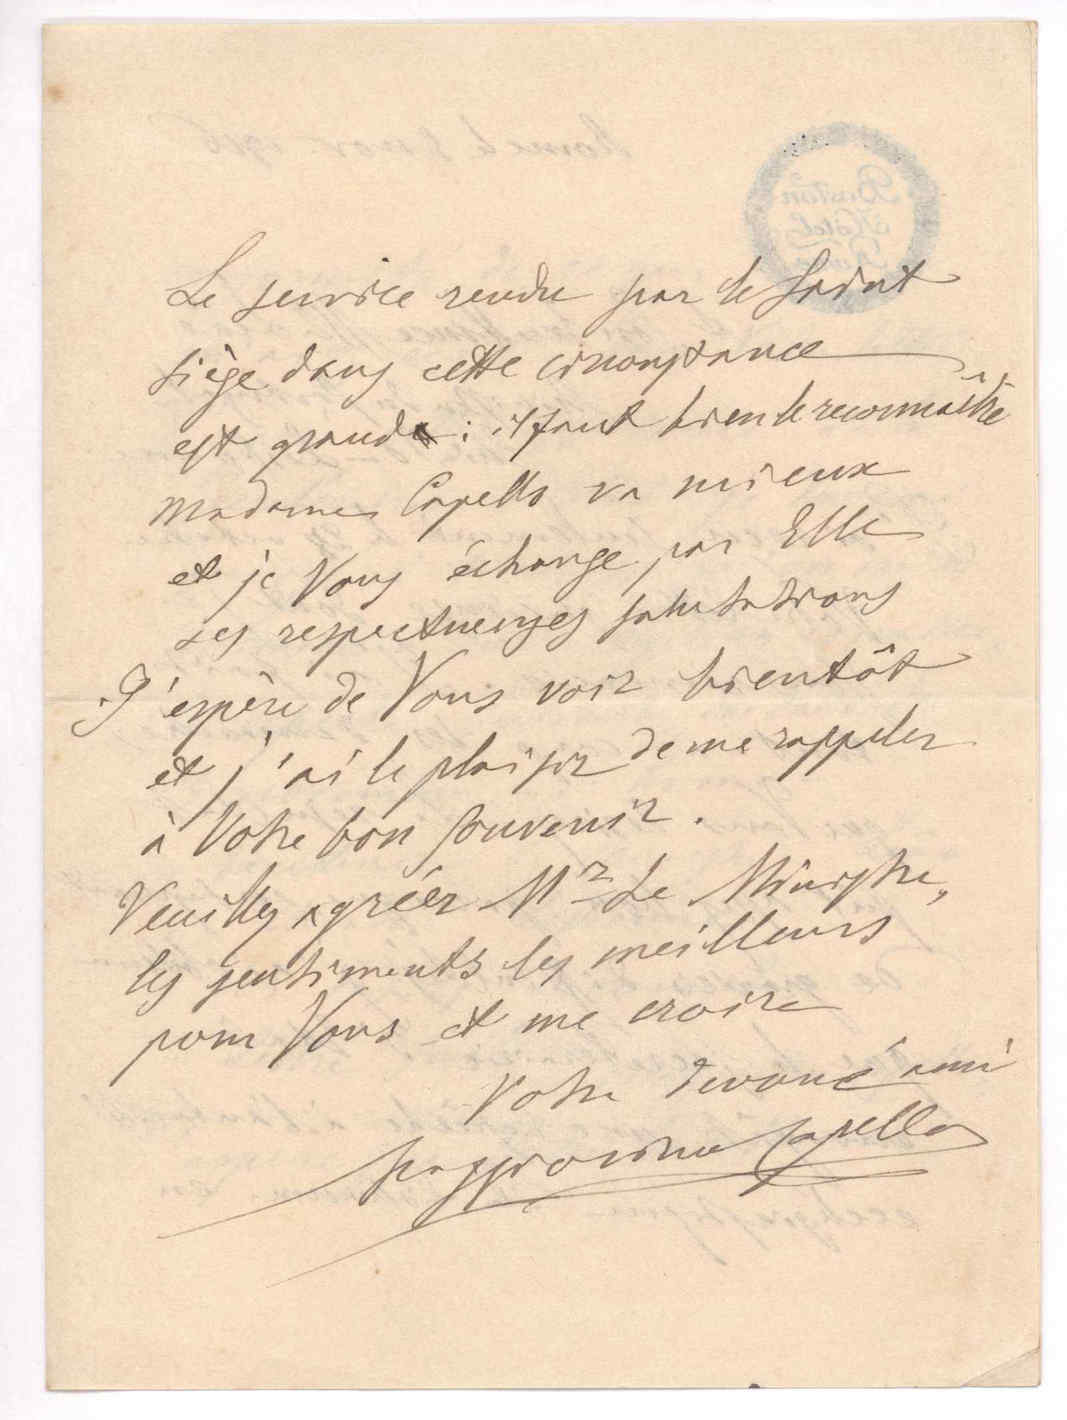 Le service rendu par le Saint
Siège dans cette circonstance
est grand : il faut bien le reconnaître
Madame Capello va mieux
et je Vous échange par Elle
ses respectueuses salutations
J'espère de Vous voir bientôt
et j'ai le plaisir de me rappeler
à Votre bon souvenir.
Veuillez agréer Mr Le Ministre,
les sentiments les meilleurs
pour Vous et me croire
Votre devoué ami
Capello